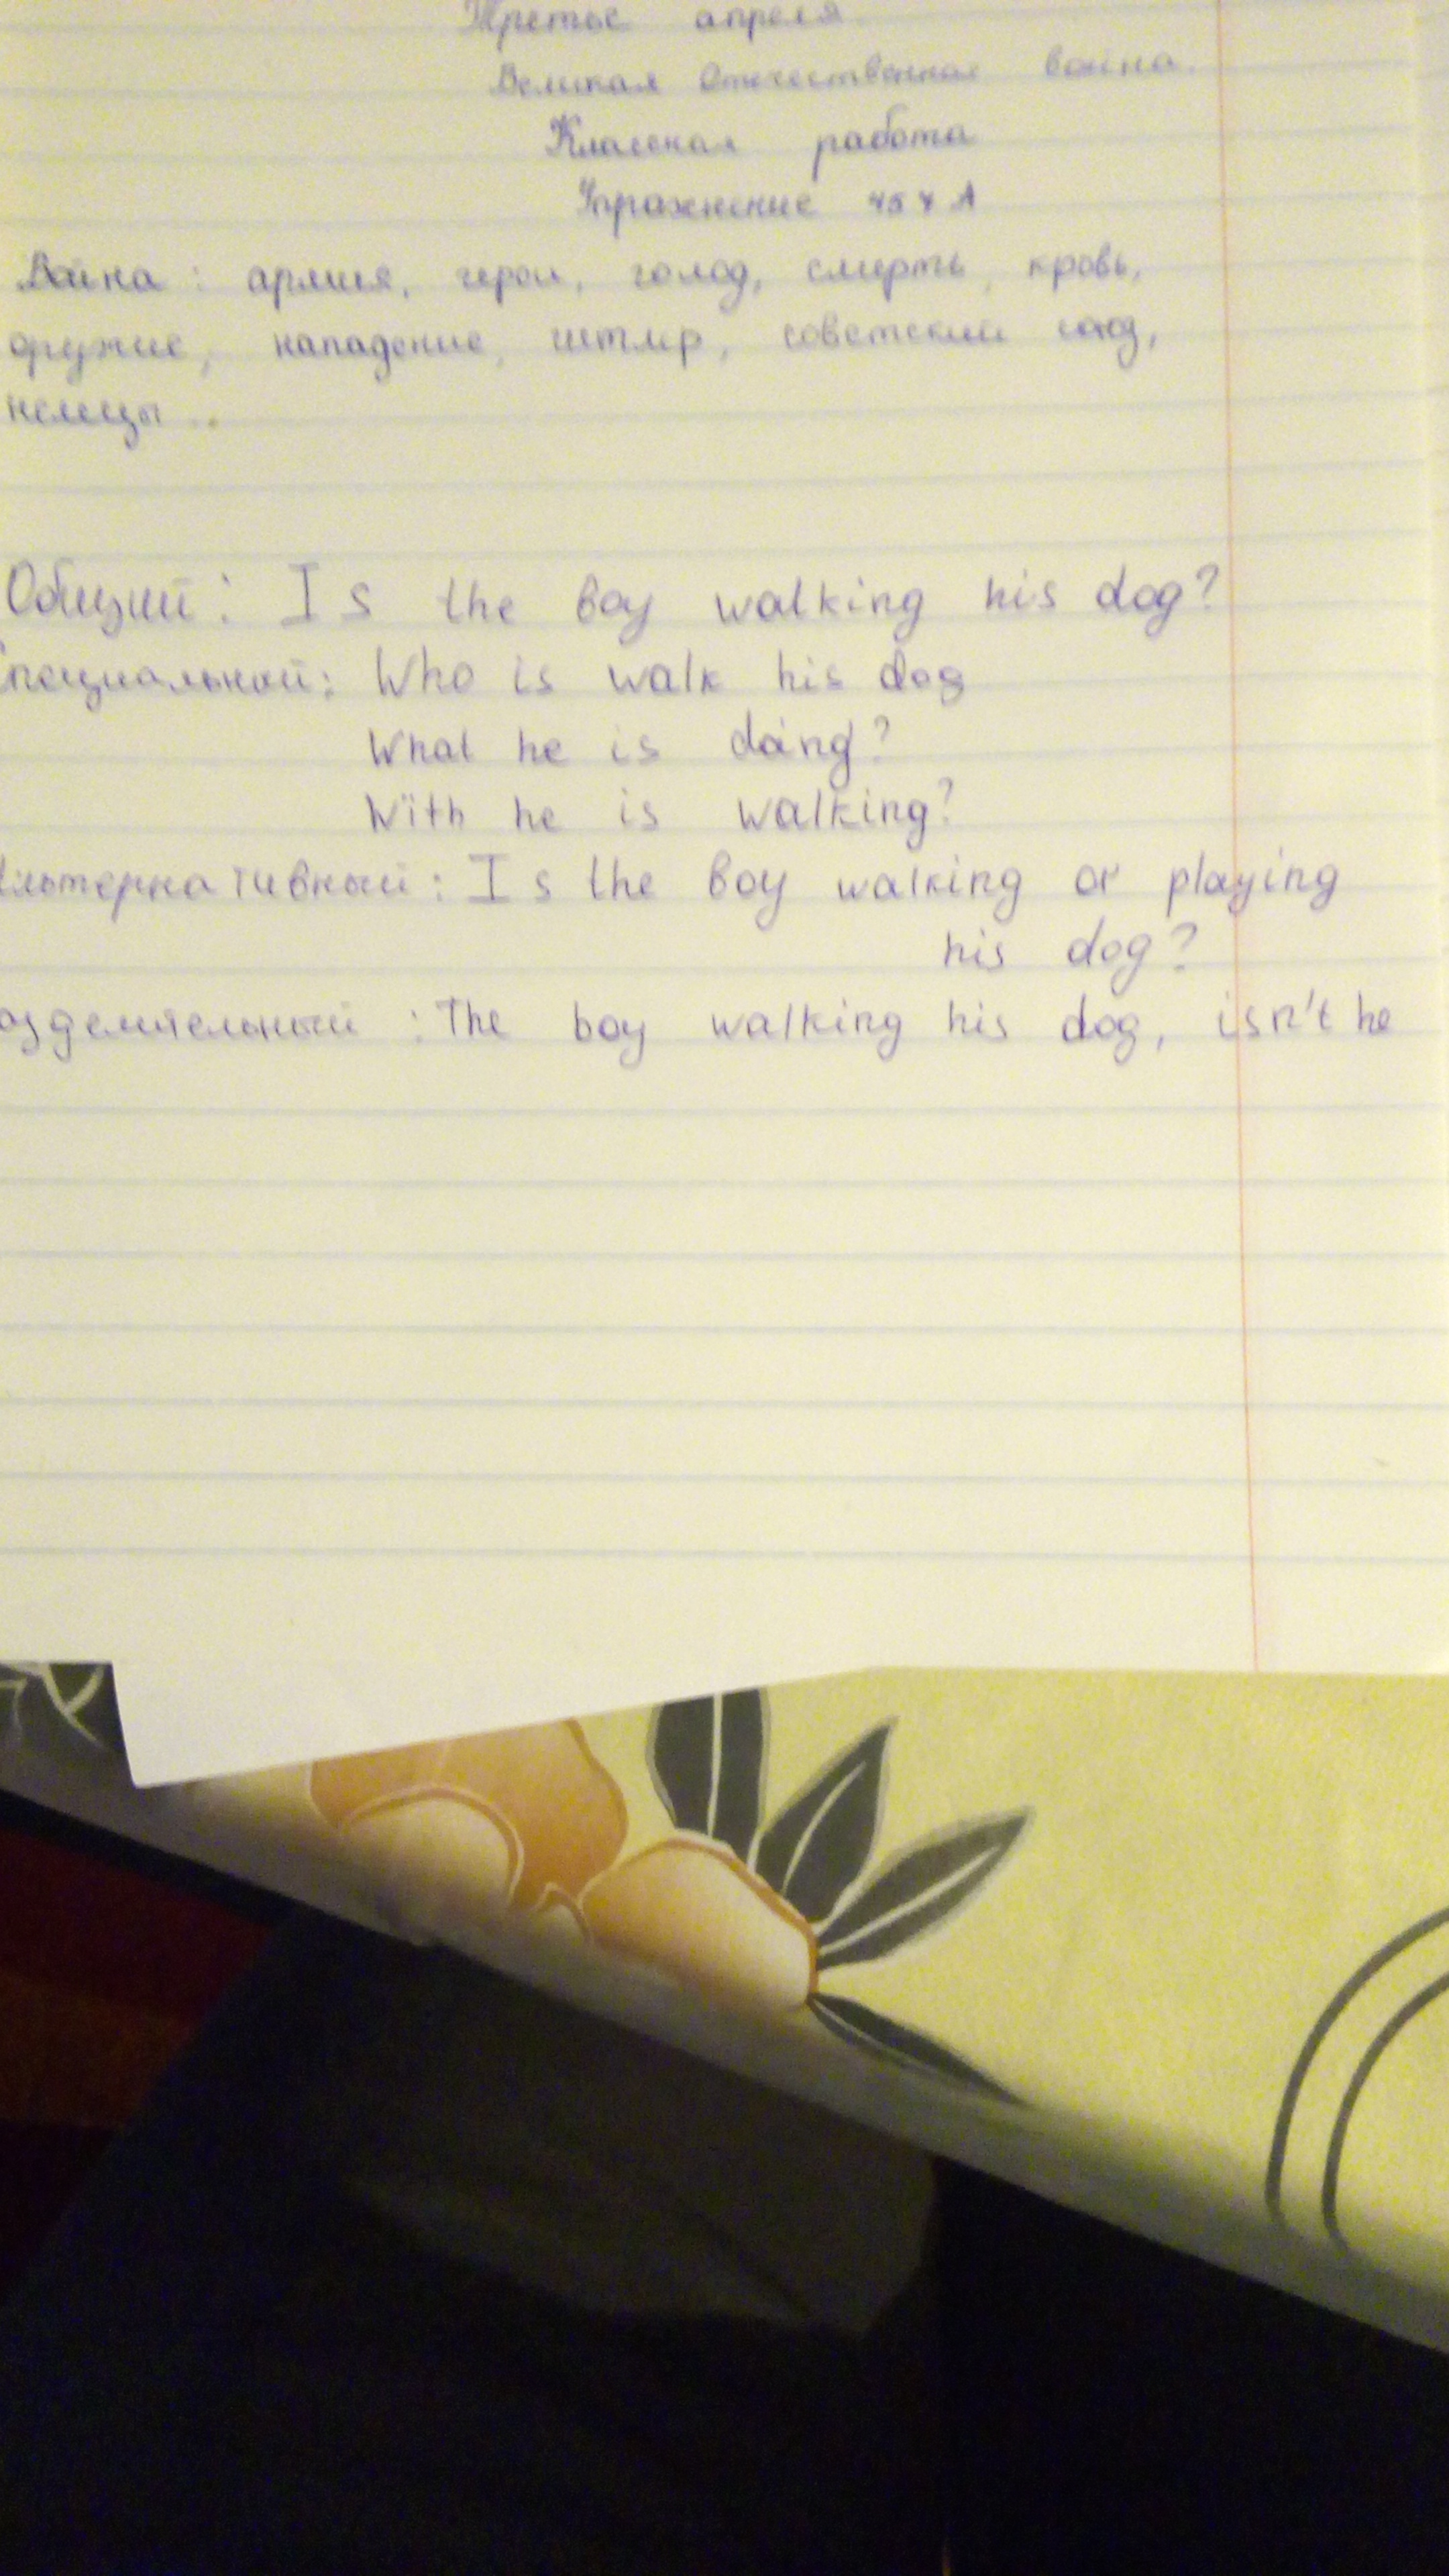 Третье апреля
Великая Отечественная война.
Классная работа
Упражнение 457 А
Война : армия, герои, голод, смерть, кровь,
оружие, нападение, гитлер, советский союз,
немецы ..
Общий : Is the boy walking his dog?
Специальный : Who is walk his dog
What he is doing?
With he is walking?
Альтернативный : Is the boy walking or playing
his dog?
озделительный : The boy walking his dog, isn't he